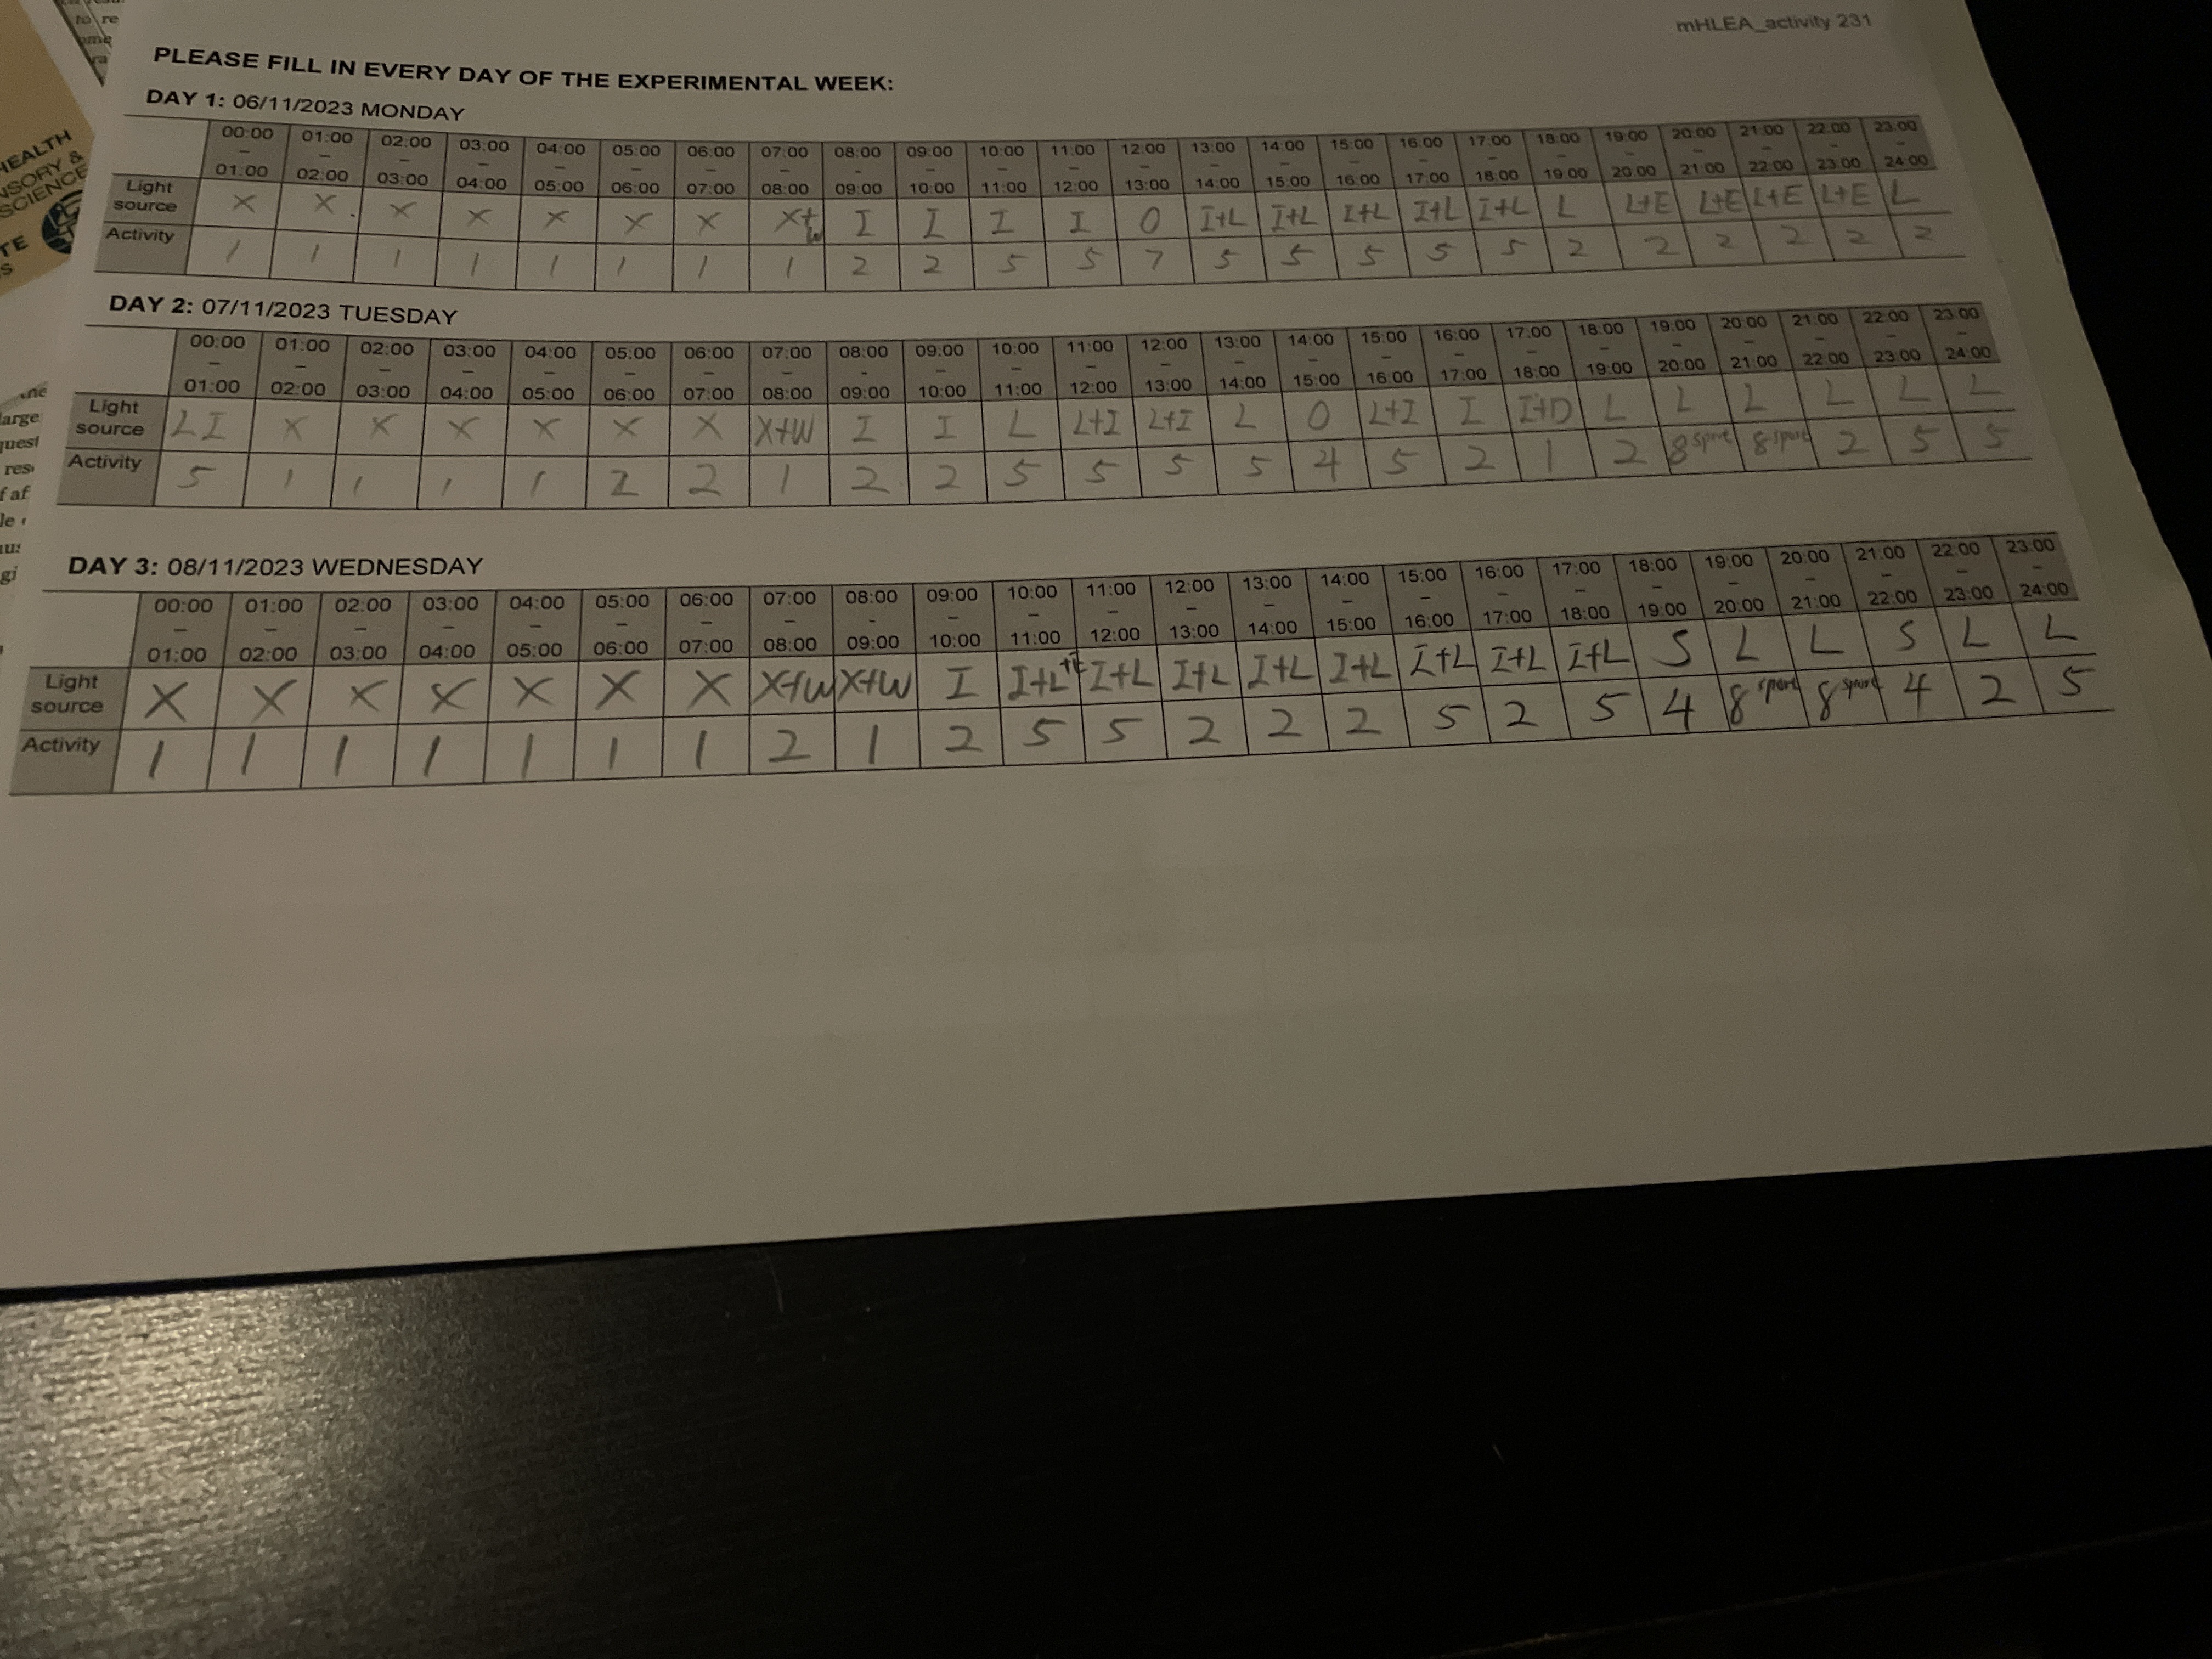 mHLEA_activity 231
PLEASE FILL IN EVERY DAY OF THE EXPERIMENTAL WEEK:
DAY 1: 06/11/2023 MONDAY
00:00 – 01:00 01:00 – 02:00 02:00 – 03:00 03:00 – 04:00 04:00 – 05:00 05:00 – 06:00 06:00 – 07:00 07:00 – 08:00 08:00 – 09:00 09:00 – 10:00 10:00 – 11:00 11:00 – 12:00 12:00 – 13:00 13:00 – 14:00 14:00 – 15:00 15:00 – 16:00 16:00 – 17:00 17:00 – 18:00 18:00 – 19:00 19:00 – 20:00 20:00 – 21:00 21:00 – 22:00 22:00 – 23:00 23:00 – 24:00
Light source X X X X X X X X+W I I I I O I+L I+L I+L I+L I+L L L+E L+E L+E L+E L
Activity 1 1 1 1 1 1 1 1 2 2 5 5 7 5 5 5 5 5 2 2 2 2 2 2
DAY 2: 07/11/2023 TUESDAY
00:00 – 01:00 01:00 – 02:00 02:00 – 03:00 03:00 – 04:00 04:00 – 05:00 05:00 – 06:00 06:00 – 07:00 07:00 – 08:00 08:00 – 09:00 09:00 – 10:00 10:00 – 11:00 11:00 – 12:00 12:00 – 13:00 13:00 – 14:00 14:00 – 15:00 15:00 – 16:00 16:00 – 17:00 17:00 – 18:00 18:00 – 19:00 19:00 – 20:00 20:00 – 21:00 21:00 – 22:00 22:00 – 23:00 23:00 – 24:00
Light source L I X X X X X X X+W I I L L+I L+I L O L+I I I+D L L L L L L
Activity 5 1 1 1 1 2 2 1 2 2 5 5 5 5 4 5 2 1 2 8 sport 8 sport 2 5 5
DAY 3: 08/11/2023 WEDNESDAY
00:00 – 01:00 01:00 – 02:00 02:00 – 03:00 03:00 – 04:00 04:00 – 05:00 05:00 – 06:00 06:00 – 07:00 07:00 – 08:00 08:00 – 09:00 09:00 – 10:00 10:00 – 11:00 11:00 – 12:00 12:00 – 13:00 13:00 – 14:00 14:00 – 15:00 15:00 – 16:00 16:00 – 17:00 17:00 – 18:00 18:00 – 19:00 19:00 – 20:00 20:00 – 21:00 21:00 – 22:00 22:00 – 23:00 23:00 – 24:00
Light source X X X X X X X X+W X+W I I+L I+L I+L I+L I+L I+L I+L I+L S L L S L L
Activity 1 1 1 1 1 1 1 2 1 2 5 5 2 2 2 5 2 5 4 8 sport 8 sport 4 2 5
HEALTH
NSORY &
SCIENCE